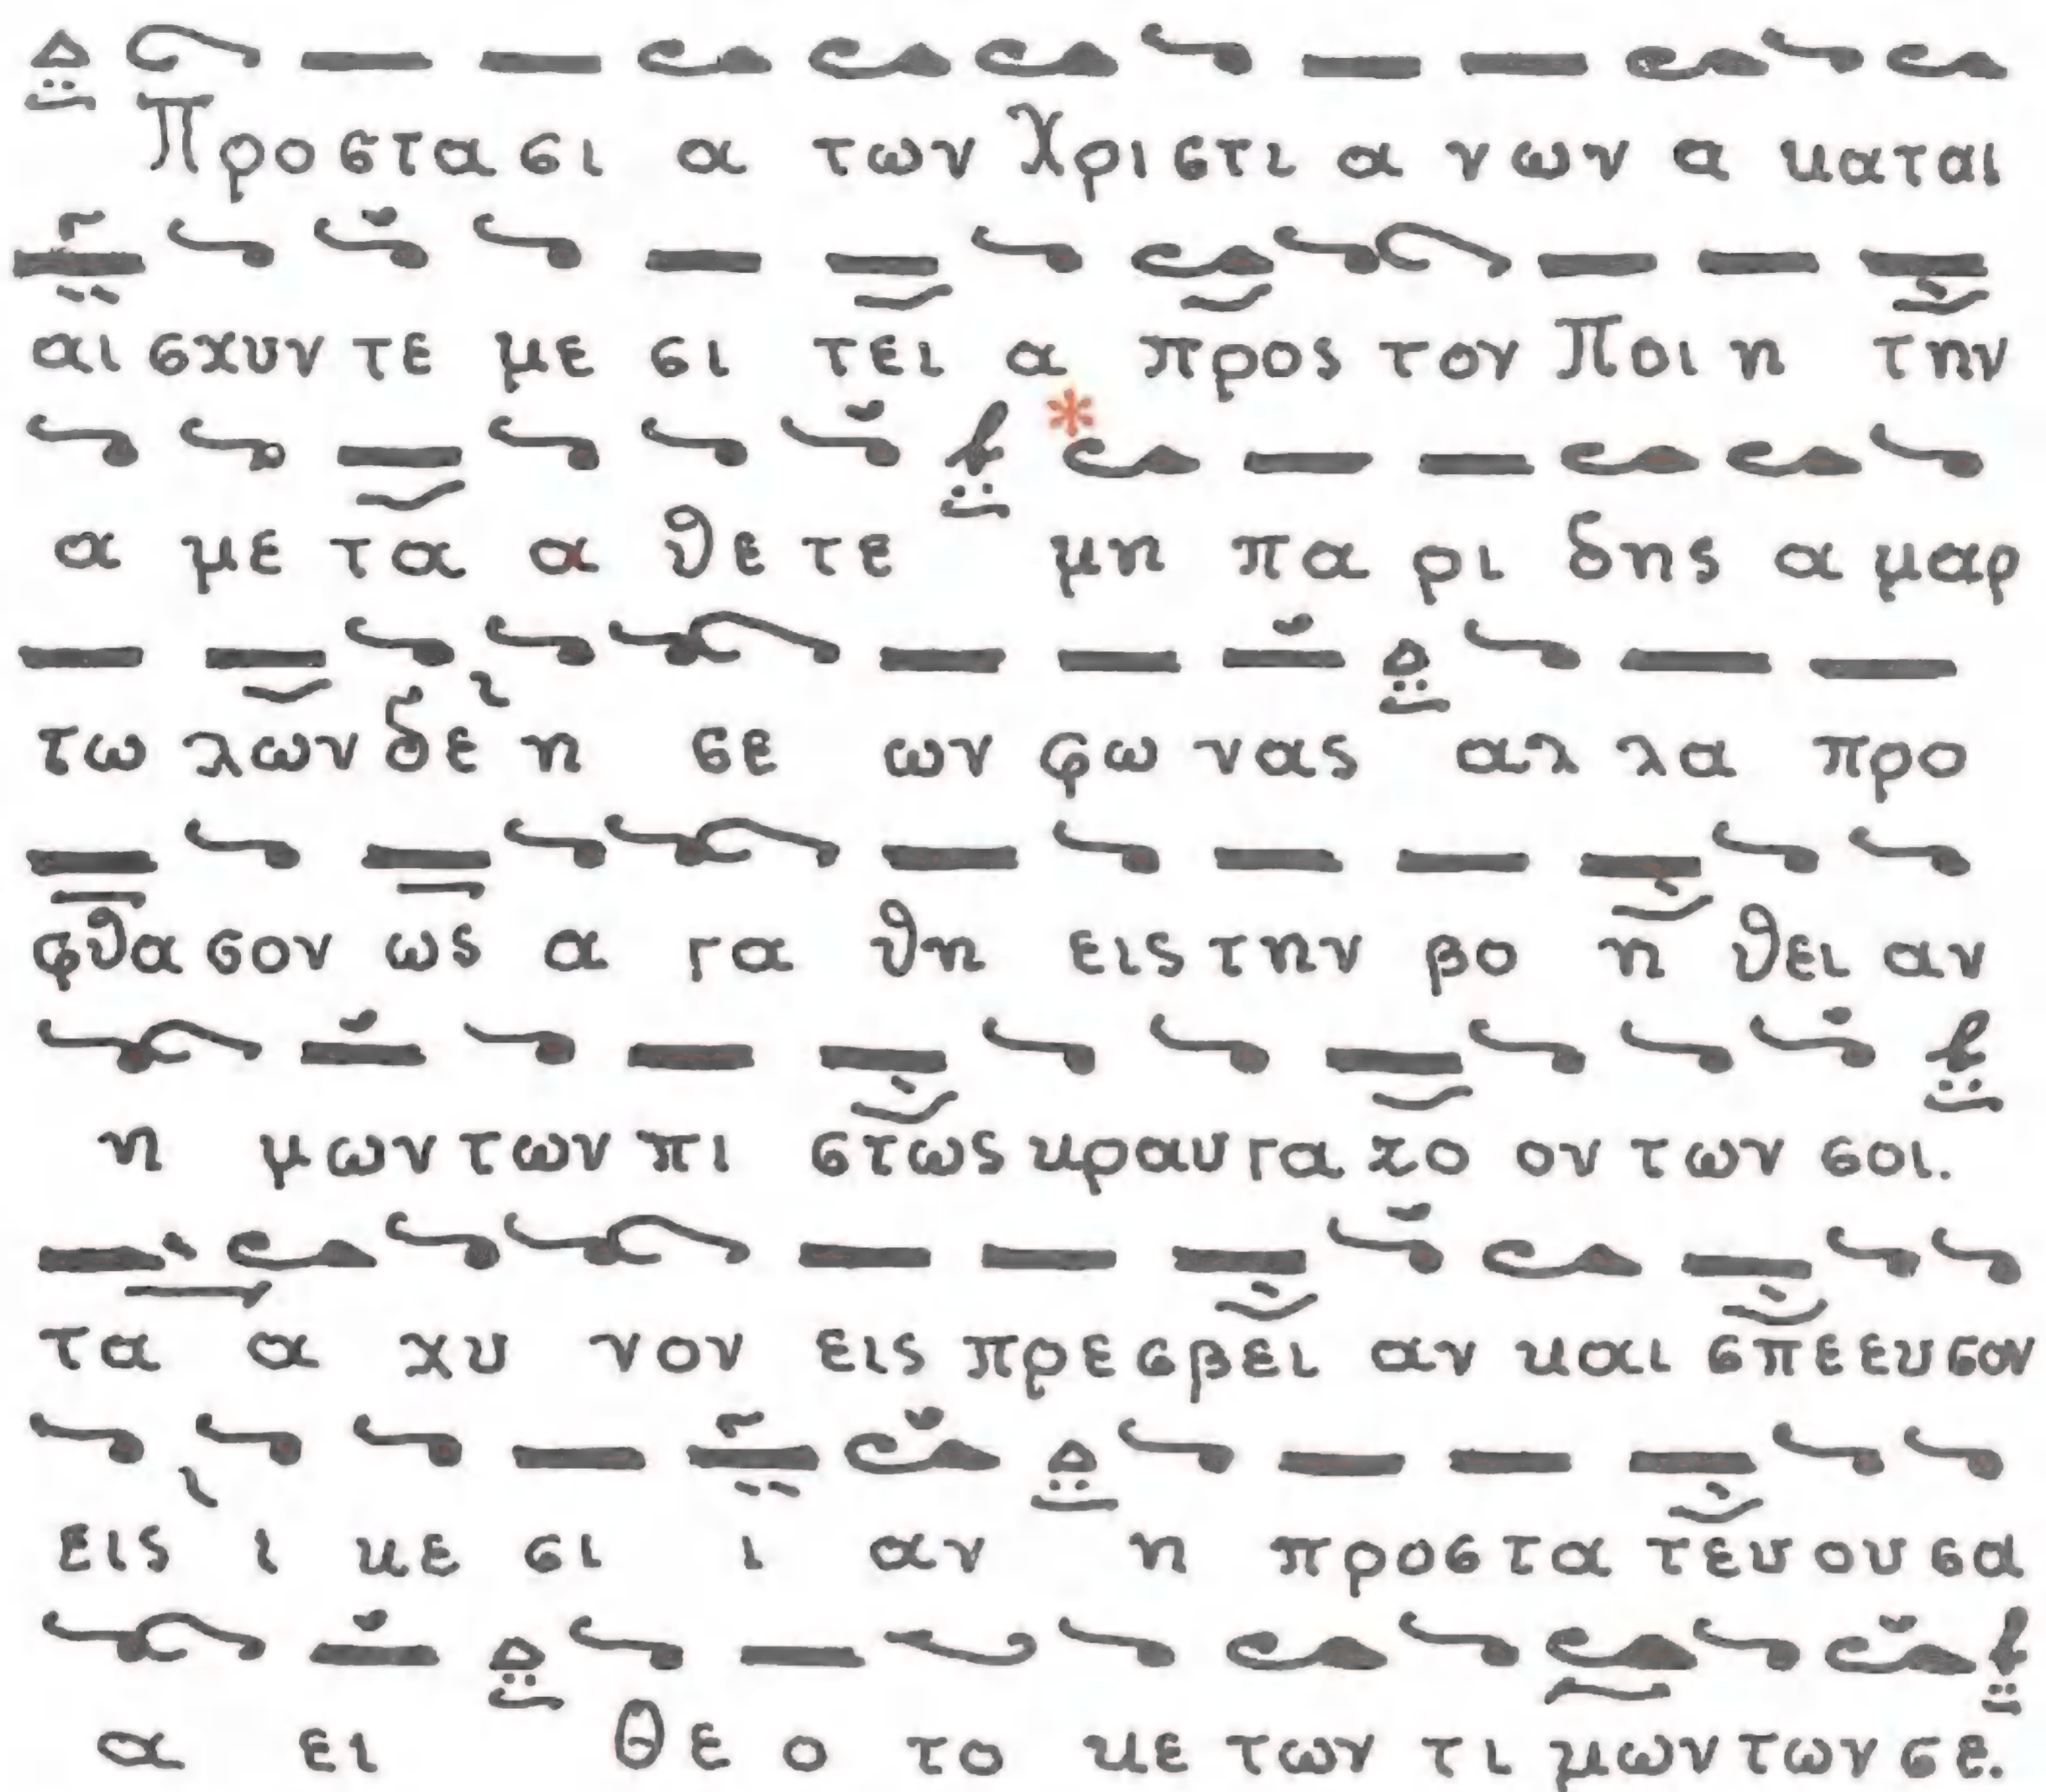 Προ στα σι α των Χρι στι α νων α καται
αι σχυν τε με σι τει α προς τον Ποι η την
α με τα α θε τε μη πα ρι δης α μαρ
τω λων δε η σε ων φω νας αλ λα προ
φθα σον ως α γα θη εις την βο η θει αν
η μων των πι στως κραυ γα ζο ον των σοι.
τα α χυ νον εις πρε σβει αν και σπε ευ σον
εις ι κε σι ι αν η προ στα τευ ου σα
α ει Θε ο το κε των τι μων των σε.